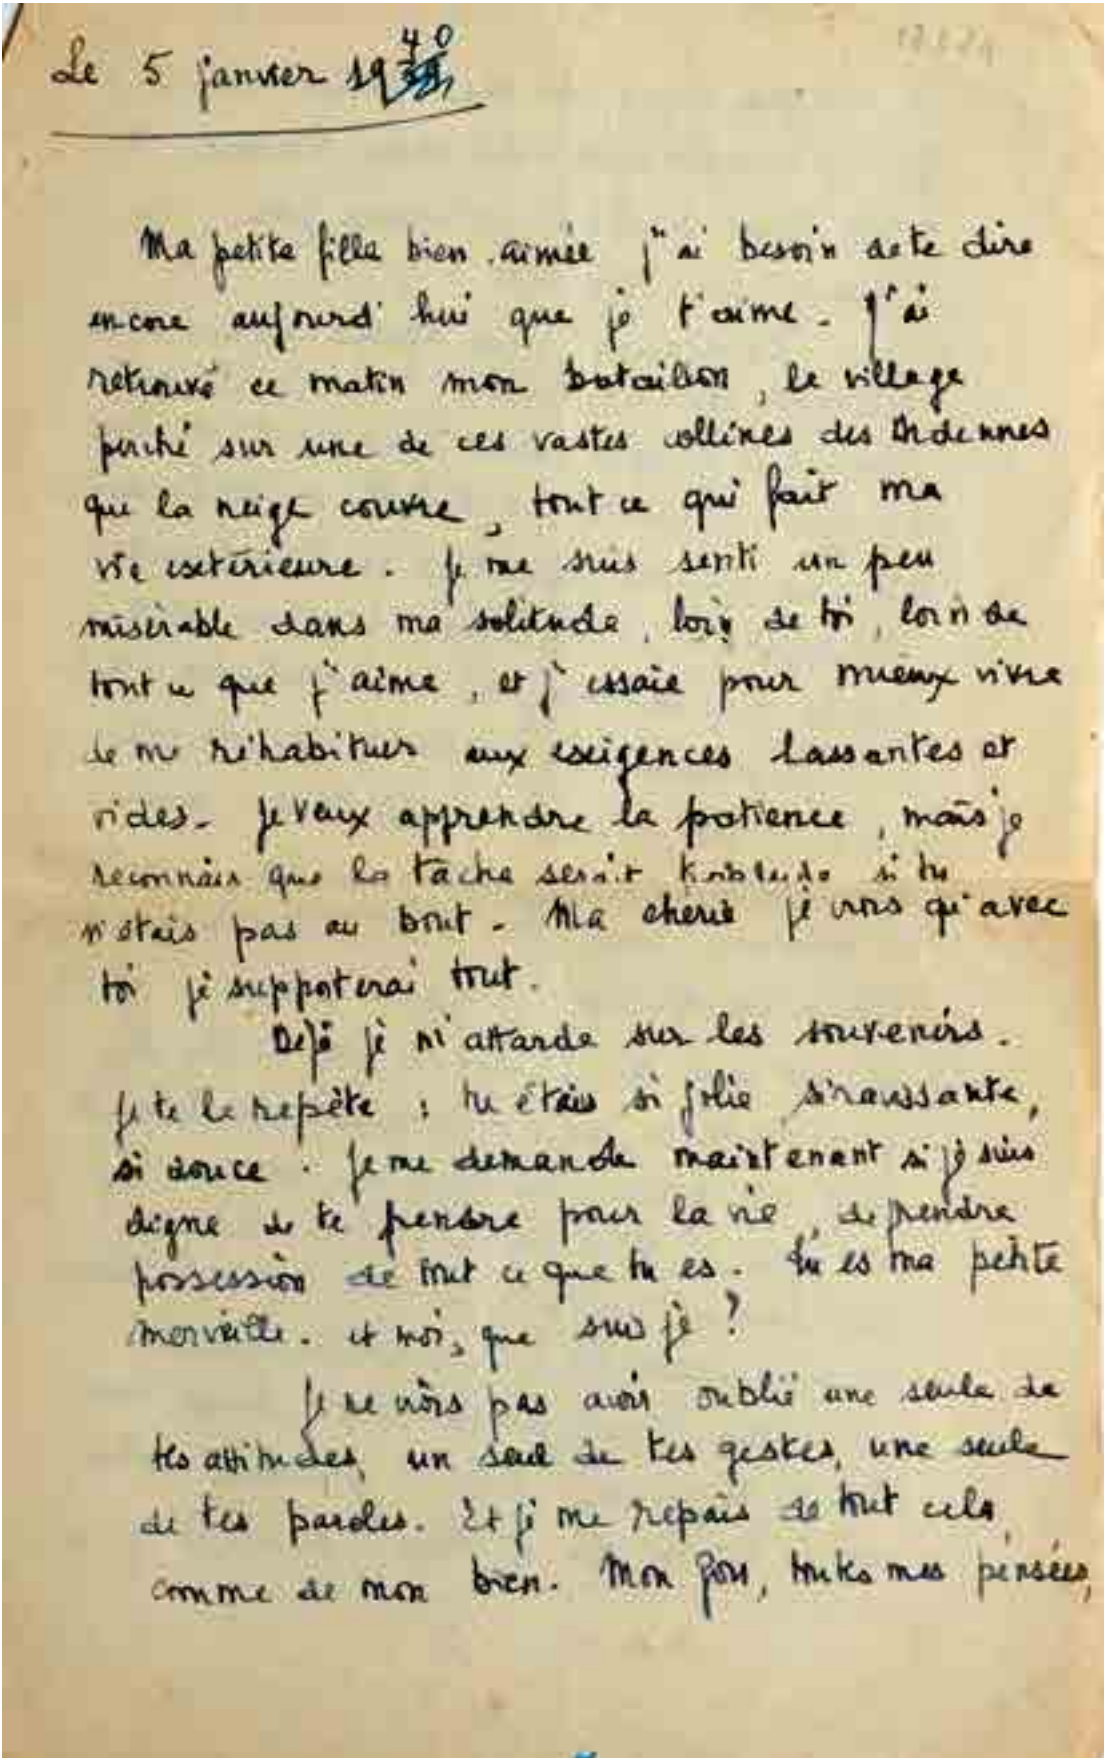 Le 5 janvier 1940
Ma petite fille bien-aimée j'ai besoin de te dire
encore aujourd'hui que je t'aime. J'ai
retrouvé ce matin mon bataillon, le village
perché sur une de ces vastes collines des Ardennes
que la neige couvre, tout ce qui fait ma
vie extérieure. Je me suis senti un peu
misérable dans ma solitude, loin de toi, loin de
tout ce que j'aime, et j'essaie pour mieux vivre
de me réhabituer aux exigences lassantes et
vides. Je veux apprendre la patience, mais je
reconnais que la tache serait si tu
n'étais pas au bout. Ma chérie je crois qu'avec
toi je supporterai tout.
Déjà je m'attarde sur les souvenirs.
Je te le répète : tu étais si jolie, si ravissante,
si douce. Je me demande maintenant si je suis
digne de te prendre pour la vie, de prendre
possession de tout ce que tu es. Tu es ma petite
merveille. et moi, que suis je ?
Je ne crois pas avoir oublié une seule de
tes attitudes, un seul de tes gestes, une seule
de tes paroles. Et je me repais de tout cela,
comme de mon bien. Mon , toutes mes pensées,